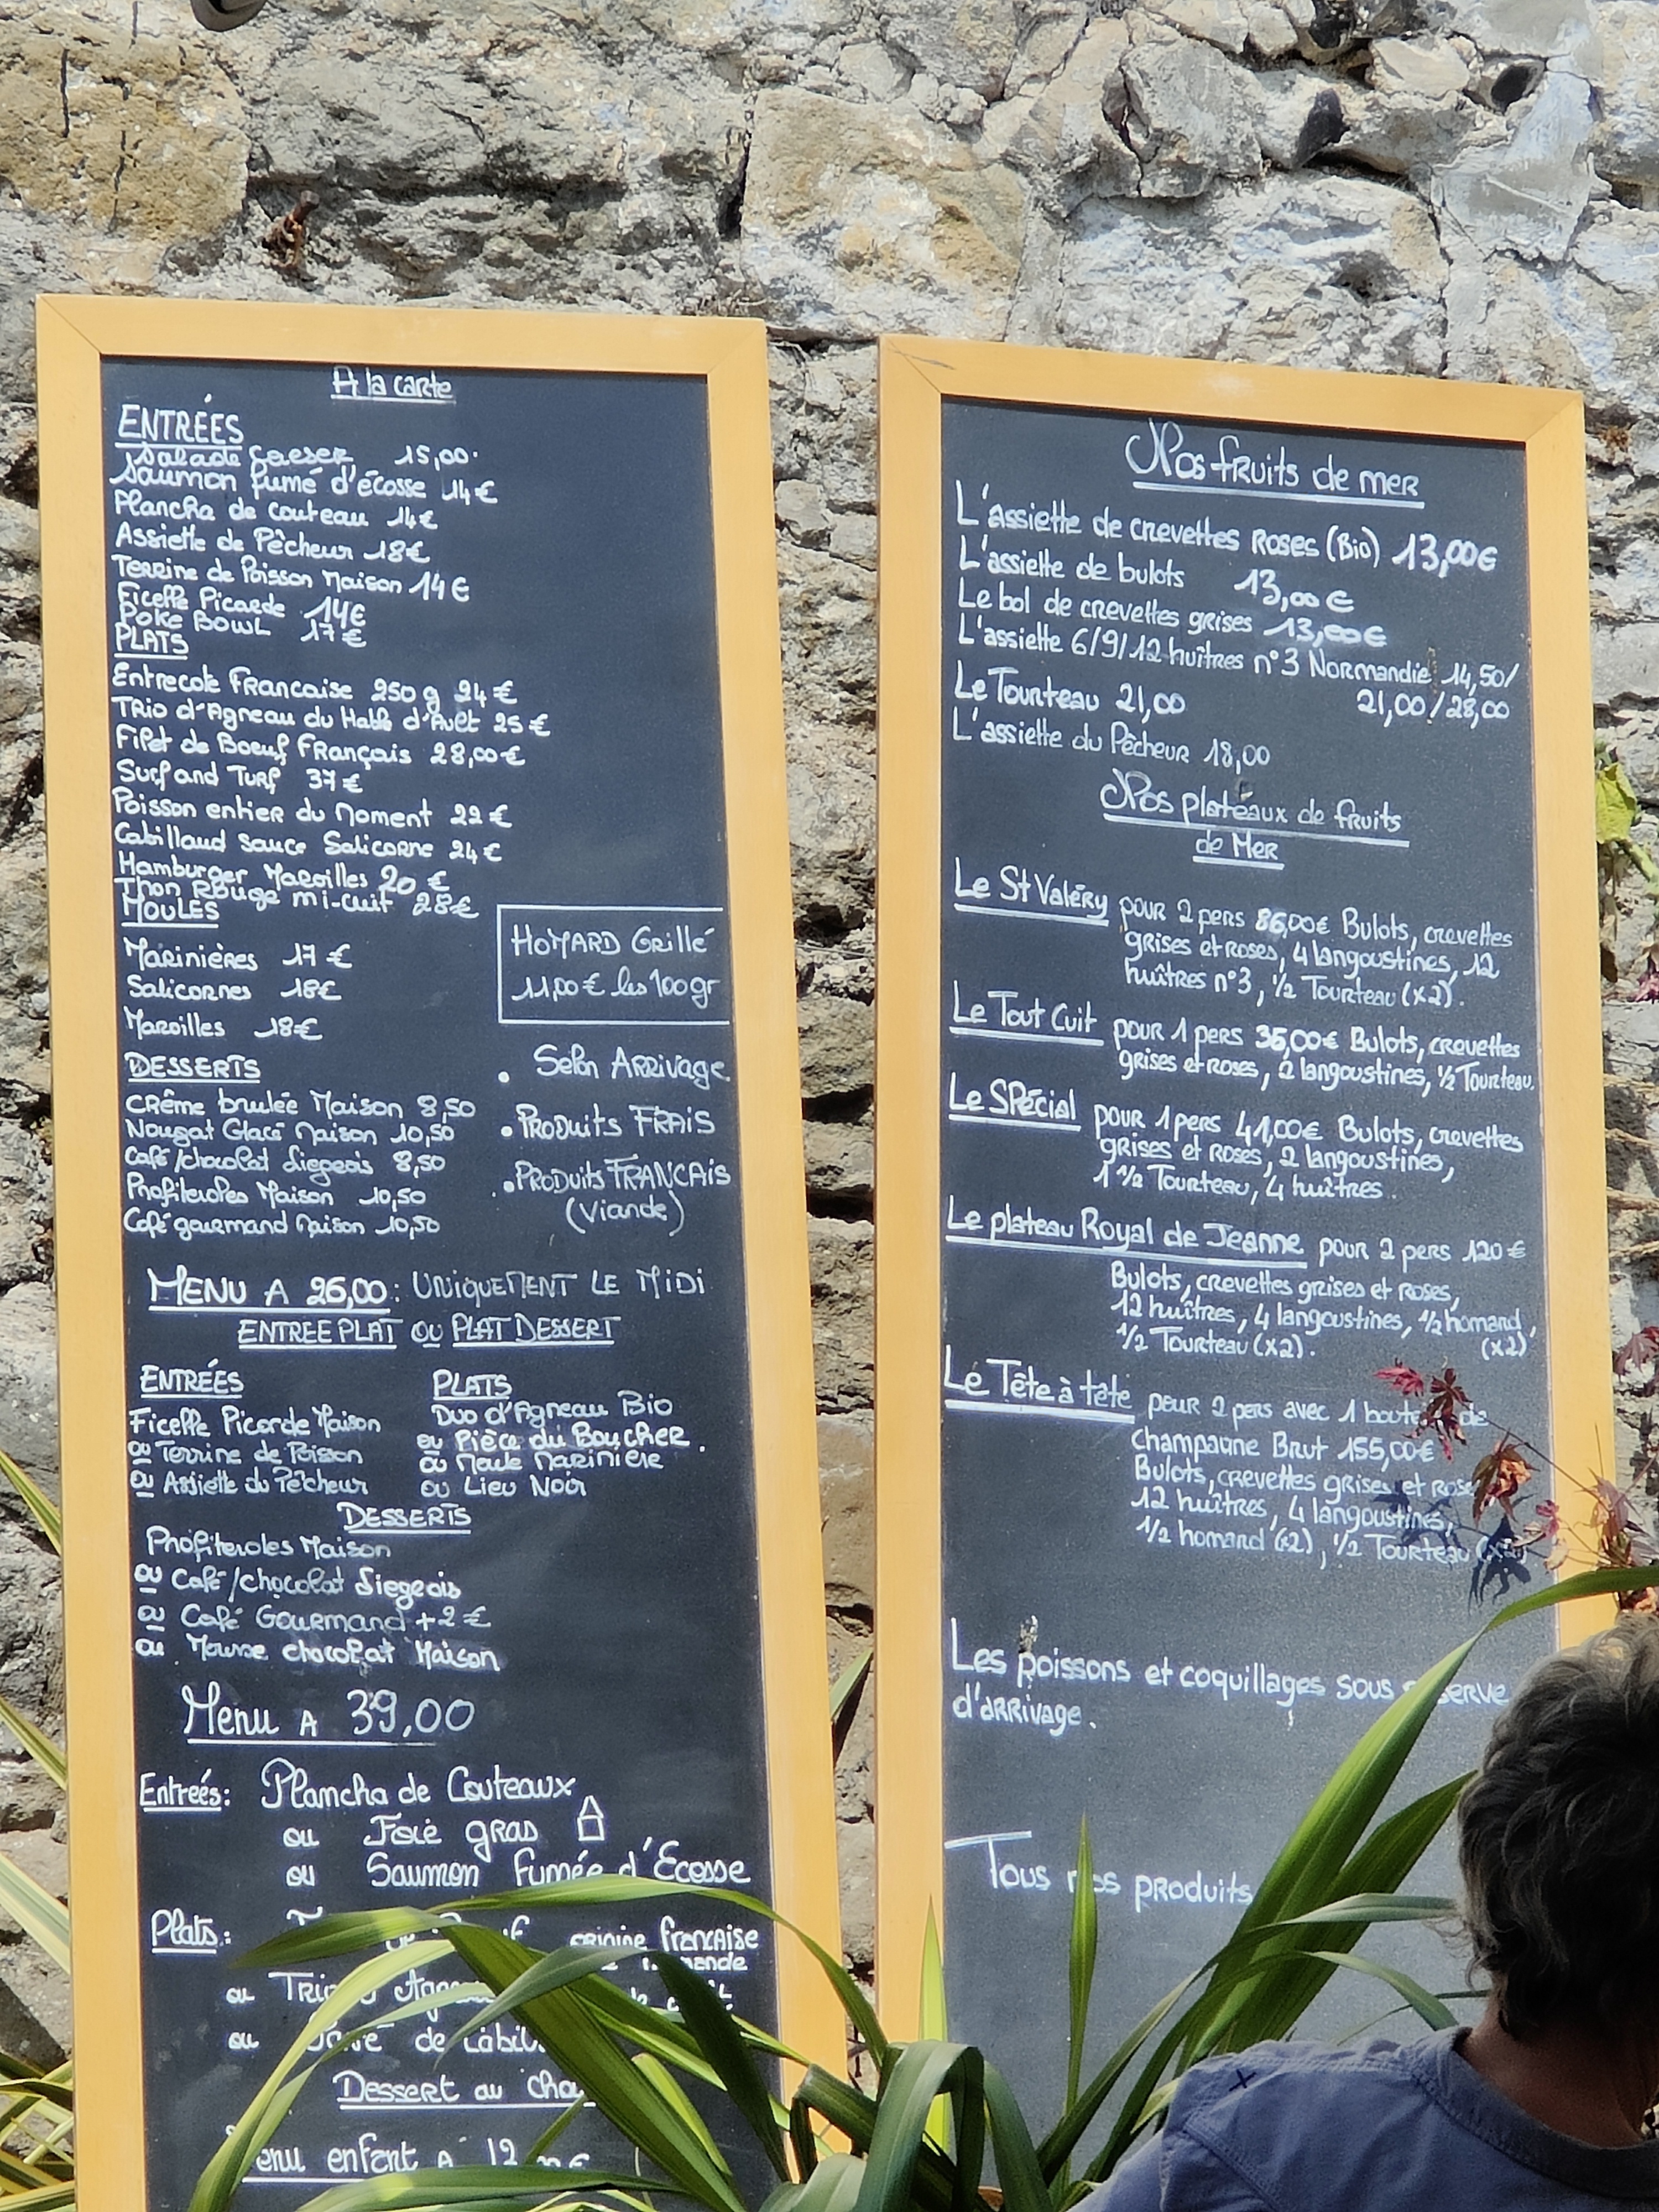 A la carte
ENTRÉES
Salade Caeser 15,00
Saumon fumé d'écosse 14€
Plancha de couteau 14€
Assiette de Pêcheur 18€
Terrine de Poisson Maison 14€
Ficelle Picarde 14€
Poke Bowl 17€
PLATS
Entrecote Francaise 250g 24€
Trio d'Agneau du Hable d'Ault 25€
Filet de Boeuf Français 28,00€
Surf and Turf 37€
Poisson entier du Moment 22€
Cabillaud Sauce Salicorne 24€
Hamburger Maroilles 20€
Thon Rouge mi-cuit 28€
MOULES
Marinières 17€
Salicornes 18€
Maroilles 18€
HOMARD Grillé
11,00€ les 100gr
. Selon Arrivage
. Produits FRAIS
. Produits FRANCAIS
(Viande)
DESSERTS
Crême brulée Maison 8,50
Nougat Glacé Maison 10,50
Café/chocolat Liegeois 8,50
Profiteroles Maison 10,50
Café gourmand Maison 10,50
MENU A 26,00 : UNIQUEMENT LE MIDI
ENTREE PLAT OU PLAT DESSERT
ENTRÉES
Ficelle Picarde Maison
ou Terrine de Poisson
ou Assiette du Pêcheur
PLATS
Duo d'Agneau Bio
ou Pièce du Boucher.
ou Moule Marinière
ou Lieu Noir
DESSERTS
Profiteroles Maison
ou Café/chocolat Liegeois
ou Café Gourmand +2€
ou Mousse chocolat Maison
Menu A 39,00
Entreés: Plancha de Couteaux
ou Foie gras
ou Saumon Fumée d'Ecosse
Plats: origine francaise
ou
ou de
Dessert au
enfant A 12
Nos fruits de mer
L'assiette de crevettes Roses (Bio) 13,00€
L'assiette de bulots 13,00€
Le bol de crevettes grises 13,00€
L'assiette 6/9/12 huîtres n°3 Normandie 14,50/
21,00/28,00
Le Tourteau 21,00
L'assiette du Pêcheur 18,00
Nos plateaux de fruits
de Mer
Le St Valéry pour 2 pers 86,00€ Bulots, crevettes
grises et roses, 4 langoustines, 12
huîtres n°3, 1/2 Tourteau (x2).
Le Tout Cuit pour 1 pers 36,00€ Bulots, crevettes
grises et roses, 2 langoustines, 1/2 Tourteau.
Le SPécial pour 1 pers 41,00€ Bulots, crevettes
grises et roses, 2 langoustines,
1 1/2 Tourteau, 4 huîtres.
Le plateau Royal de Jeanne pour 2 pers 120€
Bulots, crevettes grises et roses,
12 huîtres, 4 langoustines, 1/2 homard
1/2 Tourteau (x2). (x2)
Le Tête à tête pour 2 pers avec 1 de
Champagne Brut 155,00€
Bulots, crevettes grises et
12 huîtres, 4 langoustines,
1/2 homard (x2), 1/2 Tourteau (x2)
Les poissons et coquillages sous
d'arrivage.
Tous nos produits